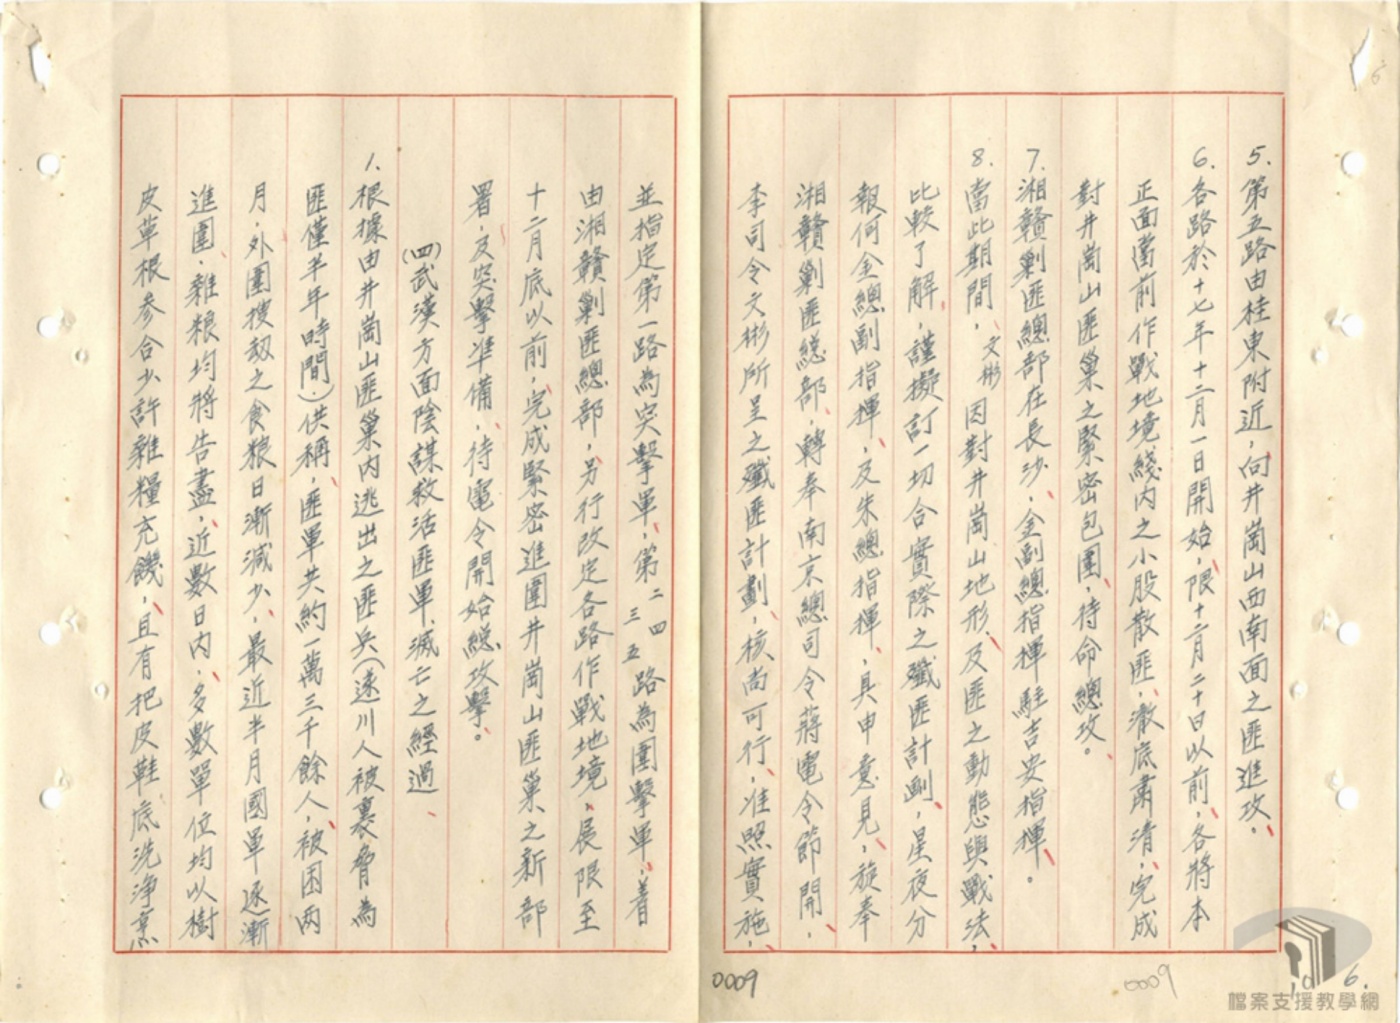 5. 第五路由桂東附近，向井崗山西南面之匪進攻。
6. 各路於十七年十二月一日開始，限十二月二十日以前，各將本
正面當前作戰地境綫內之小股散匪，澈底肅清，完成
對井崗山匪巢之緊密包圍，待命總攻。
7. 湘贛剿匪總部在長沙，金副總指揮駐吉安指揮。
8. 當此期間，文彬因對井崗山地形，及匪之動態與戰法，
比較了解，謹擬訂一切合實際之殲匪計劃，星夜分
報何金總副指揮，及朱總指揮，具申意見，旋奉
湘贛剿匪總部，轉奉南京總司令蔣電令節開，
李司令文彬所呈之殲匪計劃，核尚可行，准照實施，
並指定第一路為突擊軍，第二三四五路為圍擊軍，着
由湘贛剿匪總部，另行改定各路作戰地境，展限至
十二月底以前，完成緊密進圍井崗山匪巢之新部
署，及突擊準備，待電令開始總攻擊。
(四)武漢方面陰謀救活匪軍滅亡之經過
1. 根據由井崗山匪巢內逃出之匪兵（遂川人被裹脅為
匪僅半年時間）供稱，匪軍共約一萬三千餘人，被困兩
月，外圍搜刼之食粮日漸減少，最近半月國軍逐漸
進圍，雜粮均將告盡，近數日內，多數單位均以樹
皮草根參合少許雜糧充饑，且有把皮鞋底洗淨烹
0009
0009
10 6.
檔案支援教學網